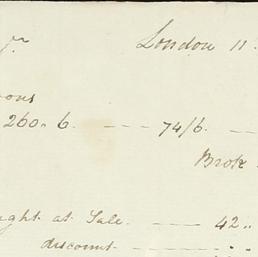 London 11
260 . 6. — 74/6. —
Brok
ught at Sale. — 42 ..
discount —